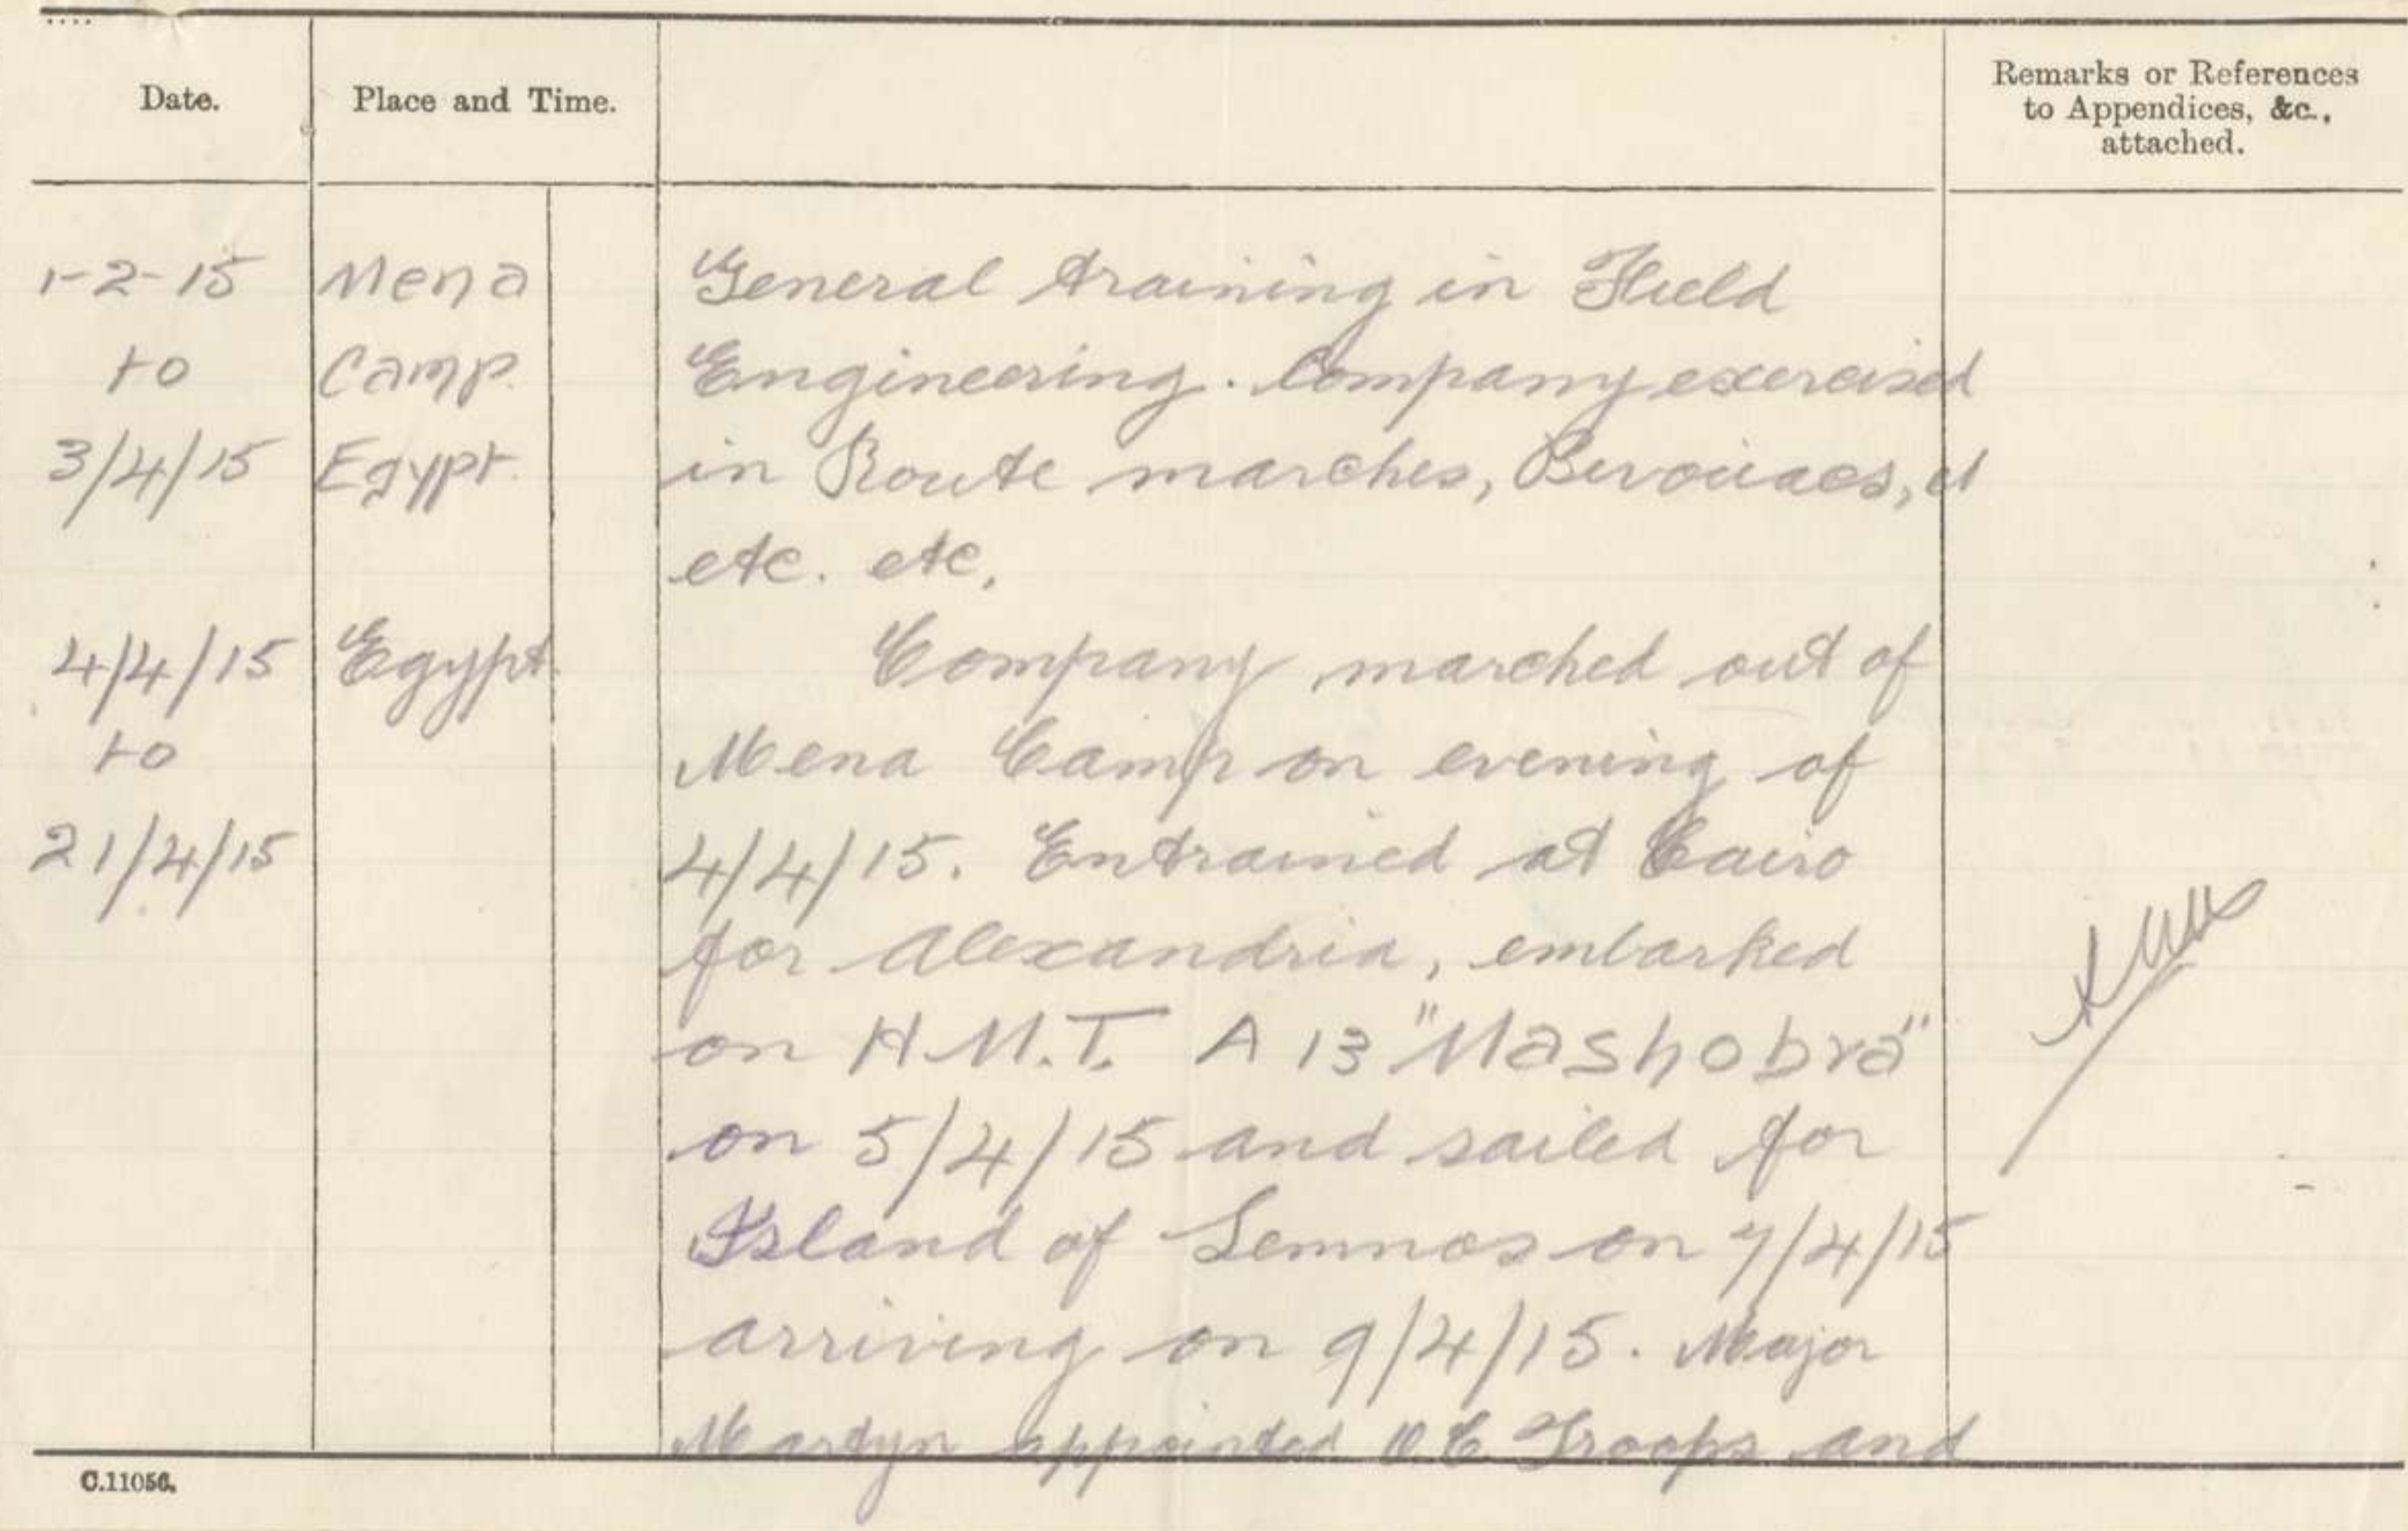 Date. Place and Time. Remarks or References
to Appendices, &c.,
attached.
1-2-15 Mena General training in Field
to Camp. Engineering. Company exercised
3/4/15 Egypt. in Route marches, Bivouacs, et
etc. etc.
4/4/15 Egypt. Company marched out of
to Mena Camp on evening of
21/4/15 4/4/15. Entrained at Cairo
for Alexandria, embarked
on H.M.T. A 13 "Mashobra"
on 5/4/15 and sailed for
Island of Lemnos on 7/4/15
arriving on 9/4/15. Major
Martyn appointed O.C. Troops and
C.11056.